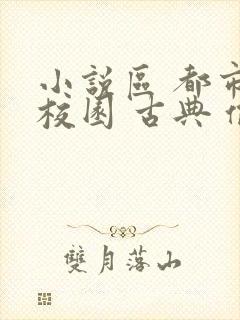 小說區 都市
校園 古典
雙月落山